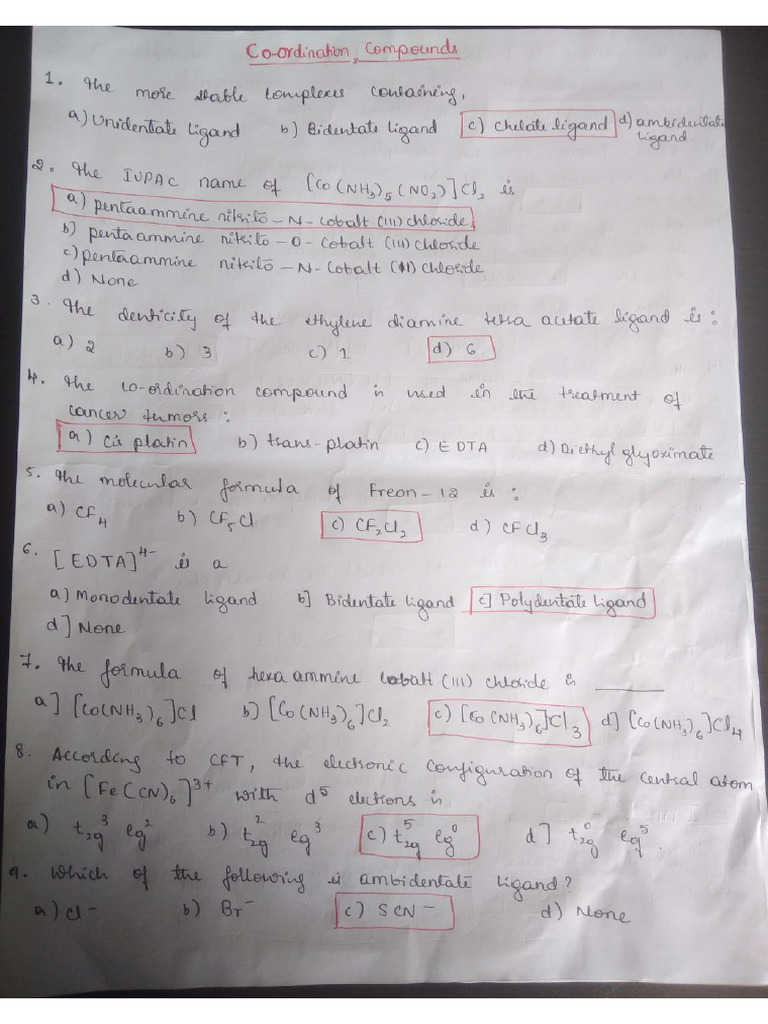 Co-ordination, Compounds
1. The more stable complexes containing,
a) Unidentate Ligand b) Bidentate Ligand c) Chelate ligand d) ambidentate ligand
2. The IUPAC name of [Co(NH₃)₅(NO₂)]Cl₂ is
a) pentaammine nitrito-N-Cobalt (III) chloride
b) pentaammine nitrito-O-Cobalt (III) chloride
c) pentaammine nitrito-N-Cobalt (II) chloride
d) None
3. The denticity of the ethylene diamine tetra acetate ligand is:
a) 2 b) 3 c) 1 d) 6
4. The co-ordination compound is used in the treatment of
cancer tumors:
a) Cis platin b) trans-platin c) EDTA d) Diethyl glyoximate
5. The molecular formula of Freon-12 is:
a) CF₄ b) CF₅Cl c) CF₂Cl₂ d) CFCl₃
6. [EDTA]⁴⁻ is a
a) Monodentate ligand b] Bidentate Ligand c] Polydentate Ligand
d] None
7. The formula of hexa ammine cobalt (III) chloride is ______
a] [Co(NH₃)₆]Cl b) [Co(NH₃)₆]Cl₂ c) [Co(NH₃)₆]Cl₃ d] [Co(NH₃)₆]Cl₄
8. According to CFT, the electronic configuration of the central atom
in [Fe(CN)₆]³⁺ with d⁵ electrons is
a) t₂g³ eg² b) t₂g² eg³ c) t₂g⁵ eg⁰ d] t₂g⁰ eg⁵.
9. Which of the following is ambidentate ligand?
a) Cl⁻ b) Br⁻ c) SCN⁻ d) None